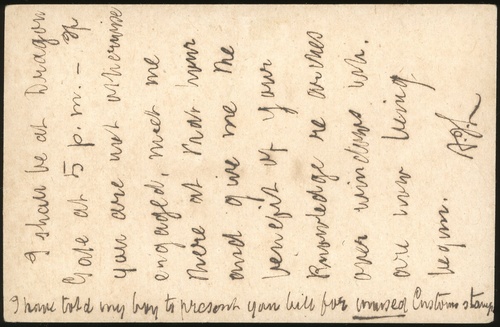 I shall be at Dragon
Gate at 5 p.m. — If
you are not otherwise
engaged, meet me
there at that hour
and give me the
benefit of your
knowledge re arches
over windows wh.
are now being
begun.
I have told my boy to present you bill for unused Customs stamps